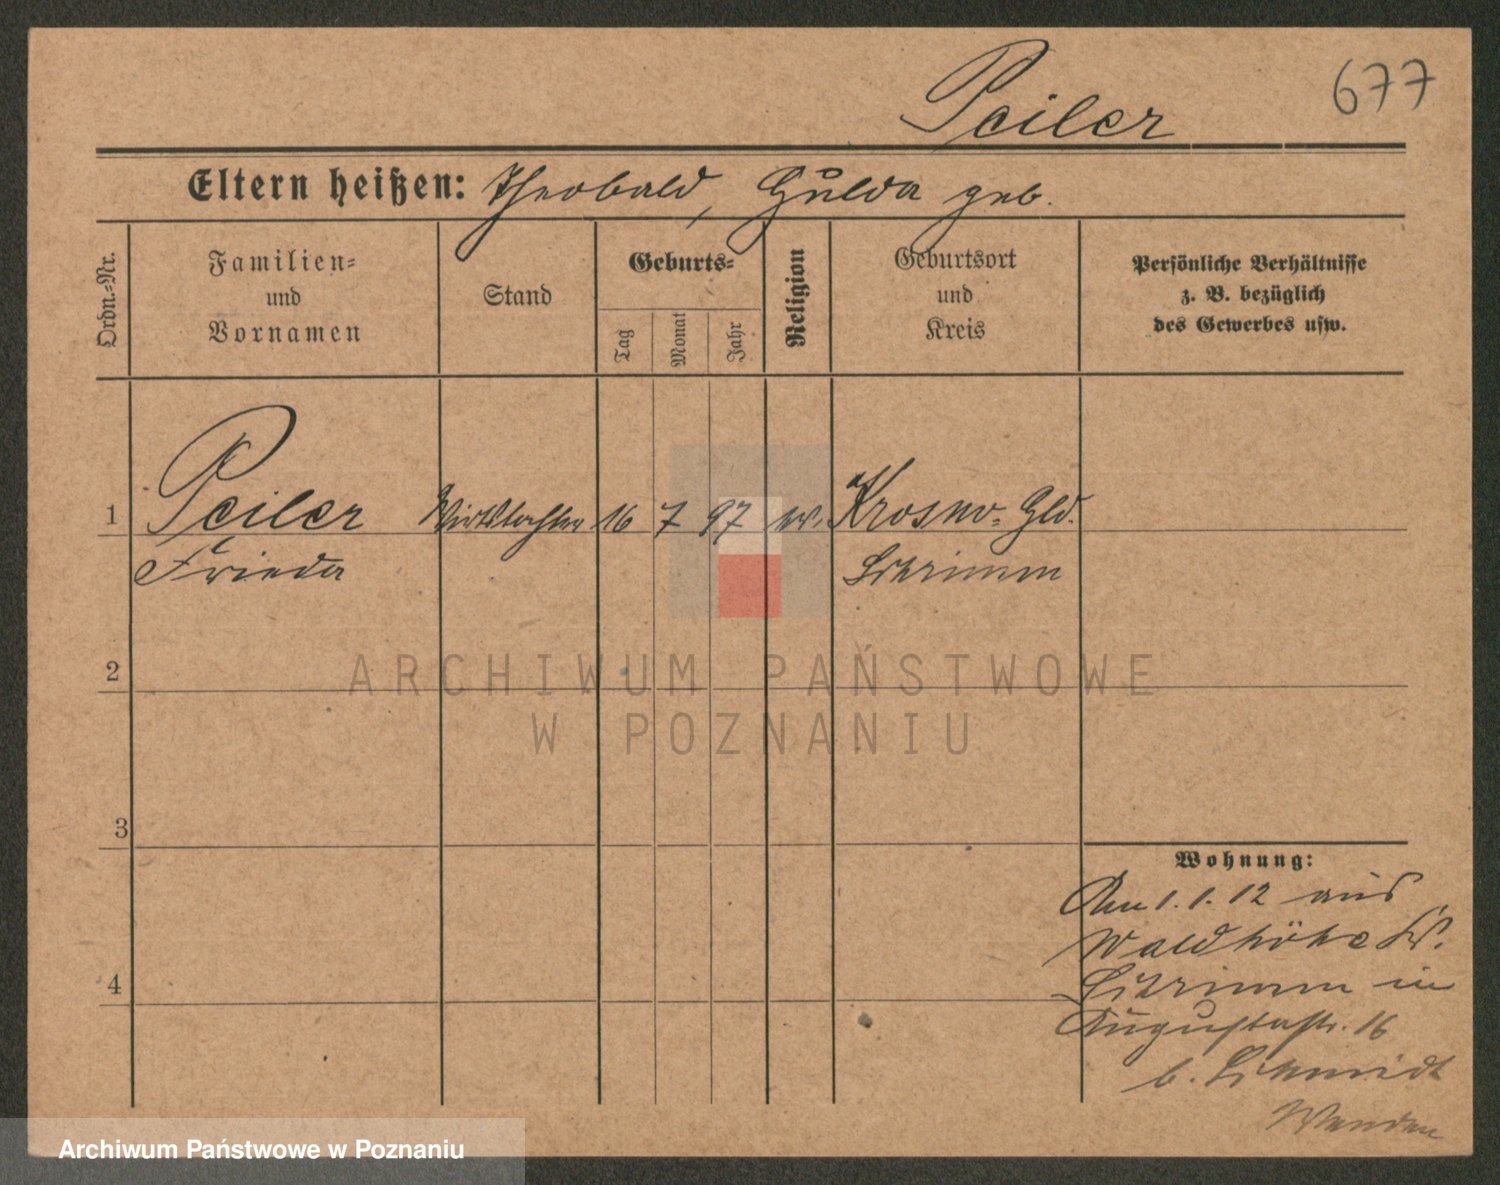 677
Peiler
Eltern heißen: Theobald, Hulda geb.
Ordn.-Nr.
Familien-
und
Vornamen
Stand
Geburts-
Tag
Monat
Jahr
Religion
Geburtsort
und
Kreis
Persönliche Verhältnisse
z. B. bezüglich
des Gewerbes usw.
1
Peiler Wirtstochter 16 7 97 ev. Krosno-Hld.
Frieda Schrimm
2
3
4
Wohnung:
Am 1.1.12 aus
Waldhöhe Kr.
Schrimm in
Augustastr. 16
b. Schmidt
Wenden
ARCHIWUM PAŃSTWOWE
W POZNANIU
Archiwum Państwowe w Poznaniu